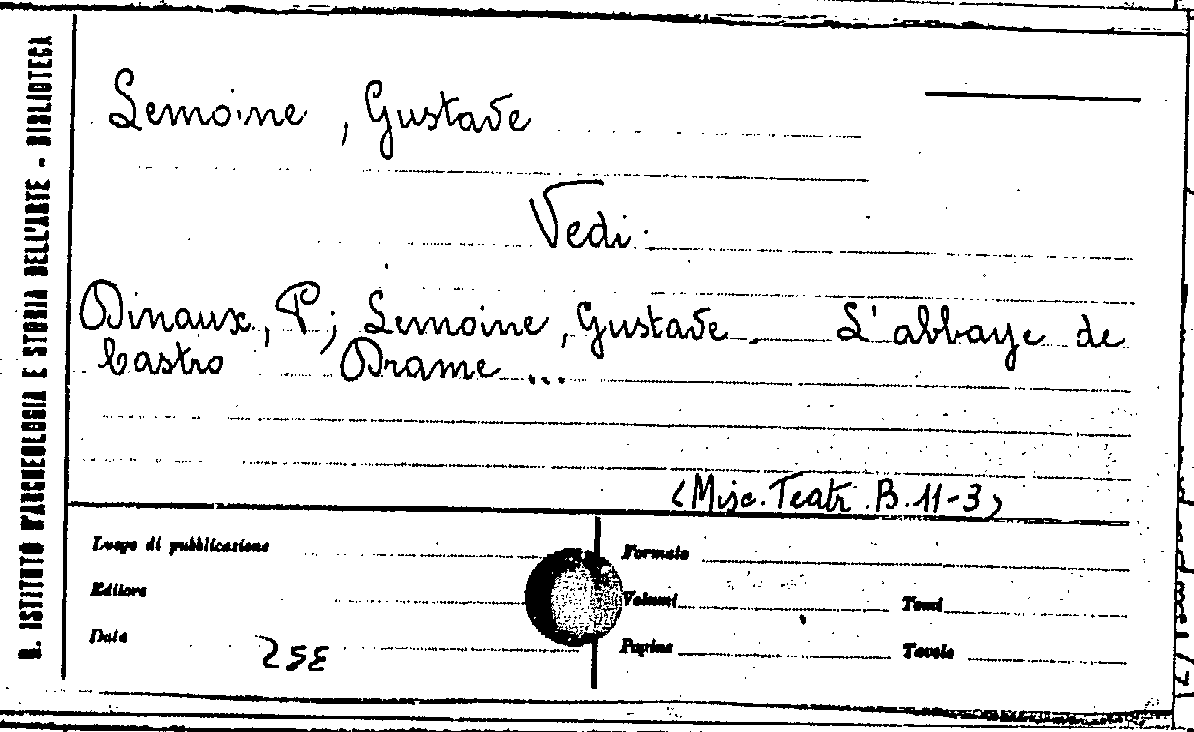 R. ISTITUTO D'ARCHEOLOGIA E STORIA DELL'ARTE - BIBLIOTECA
Lemoine, Gustave
Vedi.
Dinaux, P; Lemoine, Gustave. L'abbaye de
Castro Drame ...
(Misc. Teatr. B. 11-3)
Luogo di pubblicazione
Formato
Editore
Volumi Tomi
Data
Pagine Tavole